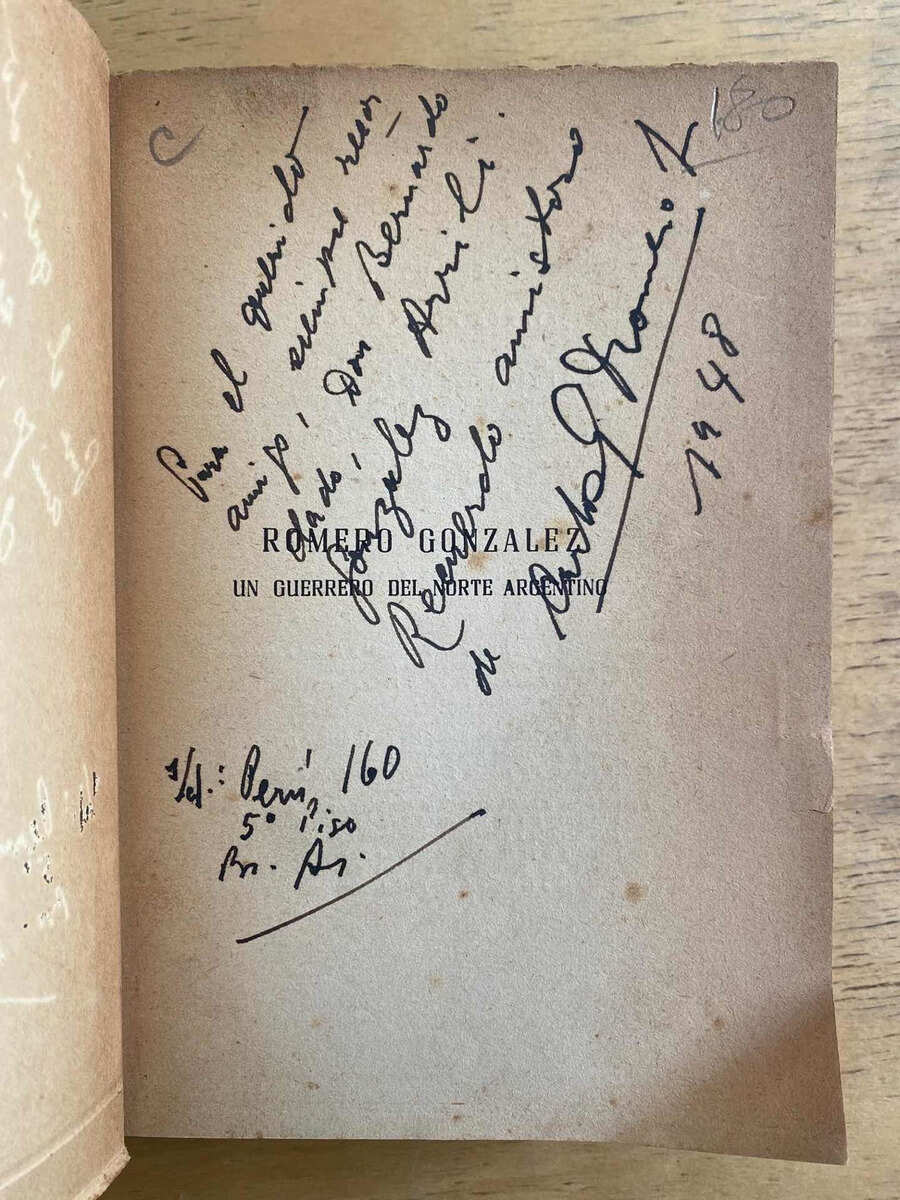 C
180
Para el querido
amigo,
dado, Don Bernardo
Gonzalez Arrili.
Recuerdo amistoso
de Carlos G Romero
1948
ROMERO GONZALEZ
UN GUERRERO DEL NORTE ARGENTINO
s/d.: Perú, 160
5º Piso
Bs. As.